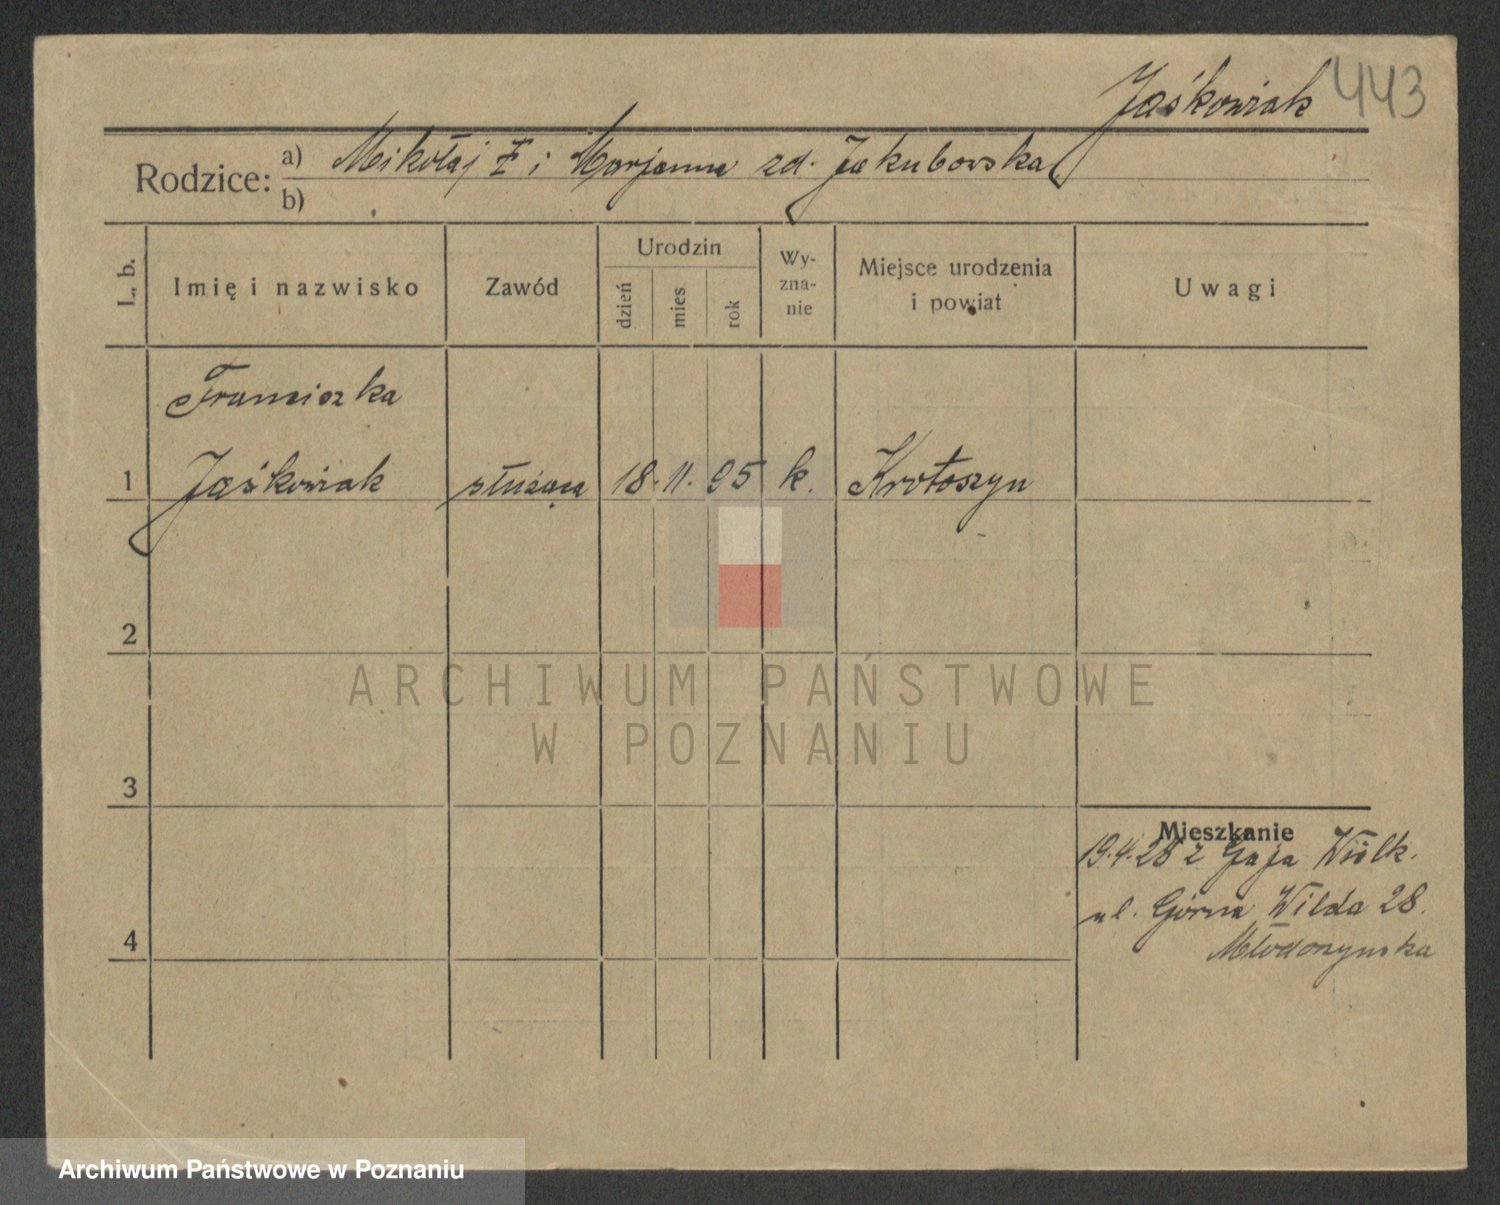 Jaśkowiak 443
Rodzice: a) Mikołaj i Marjanna zd. Jakubowska
b)
L. b.
Imię i nazwisko
Zawód
Urodzin
dzień
mies
rok
Wy-
zna-
nie
Miejsce urodzenia
i powiat
Uwagi
Franciszka
1 Jaśkowiak służąca 18. 11. 95 k. Krotoszyn
2
ARCHIWUM PAŃSTWOWE
W POZNANIU
3
Mieszkanie
19.4.28 z Gaja Wielk.
ul. Górna Wilda 28.
4
Archiwum Państwowe w Poznaniu